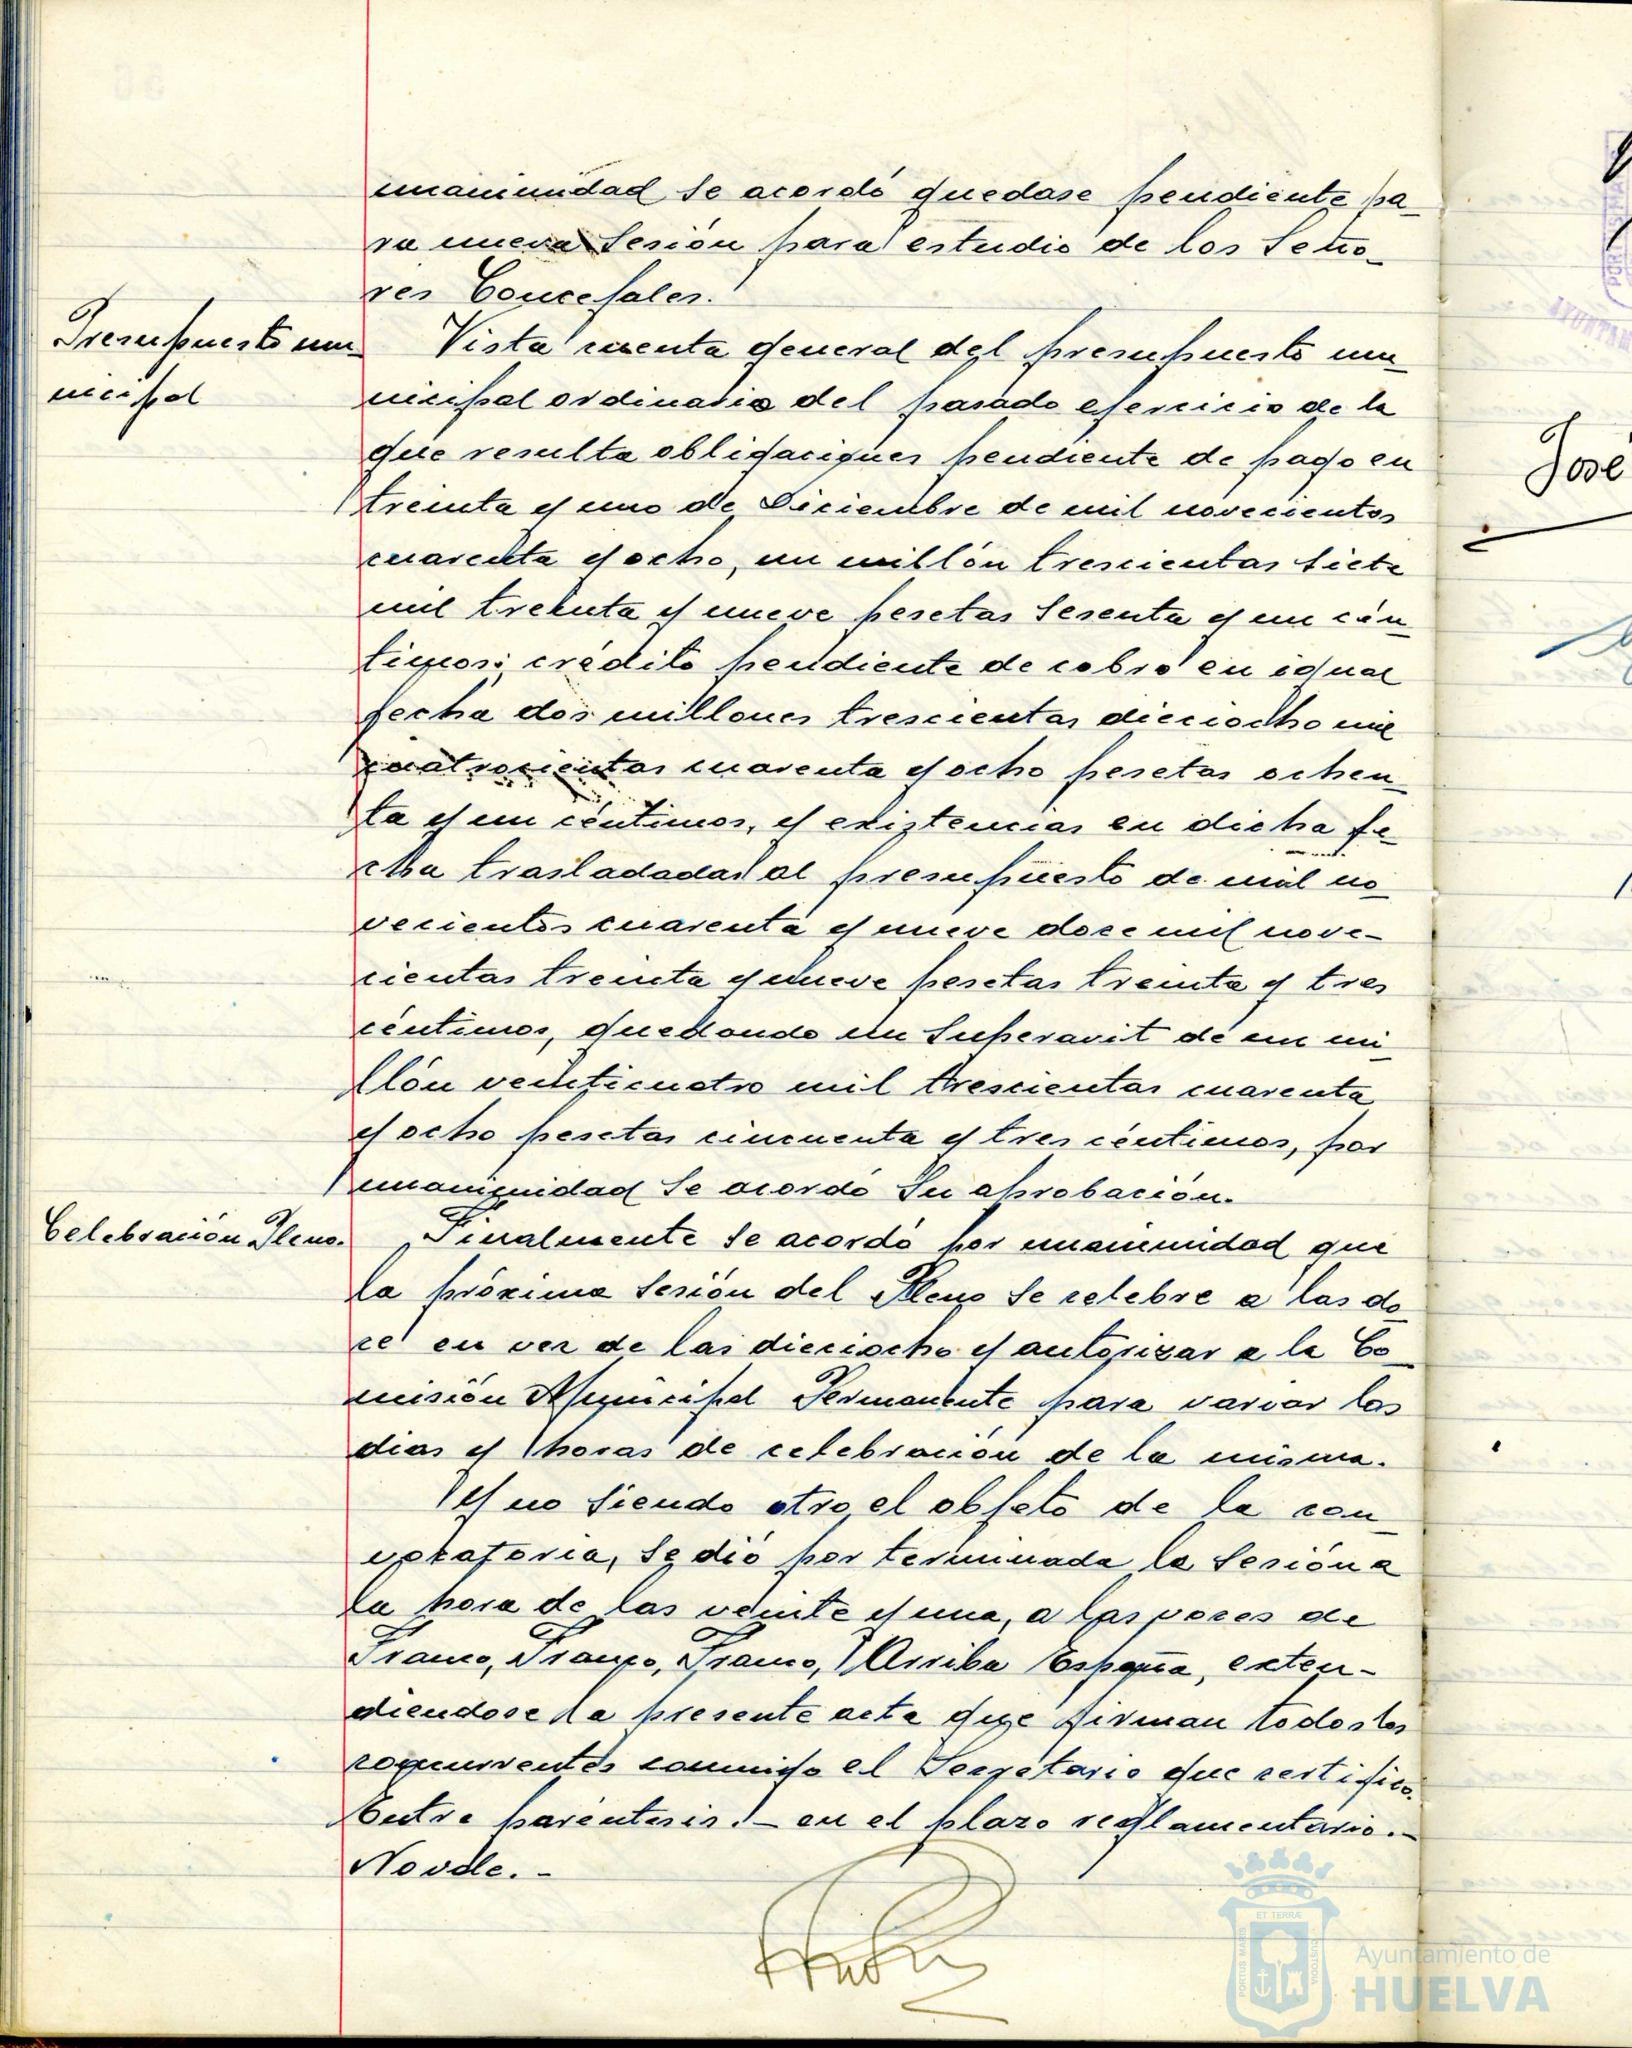 unanimidad se acordó quedase pendiente pa-
ra nueva Sesión para estudio de los Seño-
res Concejales.
Presupuesto mu-
nicipal
Vista cuenta general del presupuesto mu-
nicipal ordinario del pasado ejercicio de la
que resulta obligaciones pendiente de pago en
treinta y uno de Diciembre de mil novecientos
cuarenta y ocho, un millón trescientas siete
mil treinta y nueve pesetas Sesenta y un cén-
timos; crédito pendiente de cobro en igual
fecha dos millones trescientas dieciocho mil
cuatrocientas cuarenta y ocho pesetas ochen-
ta y un céntimos, y existencias en dicha fe-
cha trasladadas al presupuesto de mil no-
vecientos cuarenta y nueve doce mil nove-
cientas treinta y nueve pesetas treinta y tres
céntimos, quedando un Superavit de un mi-
llón veinticuatro mil trescientas cuarenta
y ocho pesetas cincuenta y tres céntimos, por
unanimidad Se acordó Su aprobación.
Celebración Pleno.
Finalmente Se acordó por unanimidad que
la próxima Sesión del Pleno Se celebre a las do-
ce en vez de las dieciocho y autorizar a la Co-
misión Municipal Permanente para variar los
dias y horas de celebración de la misma.
Y no Siendo otro el objeto de la con-
vocatoria, Se dió por terminada la Sesión a
la hora de las veinte y una, a las voces de
Franco, Franco, Franco, ¡Arriba España, exten-
diendose la presente acta que firman todos los
concurrentes conmigo el Secretario que certifico.
Entre parentesis.- en el plazo reglamentario.-
No vale.-
José
ET TERRÆ
PORTUS MARIS
CUSTODIA
Ayuntamiento de
HUELVA